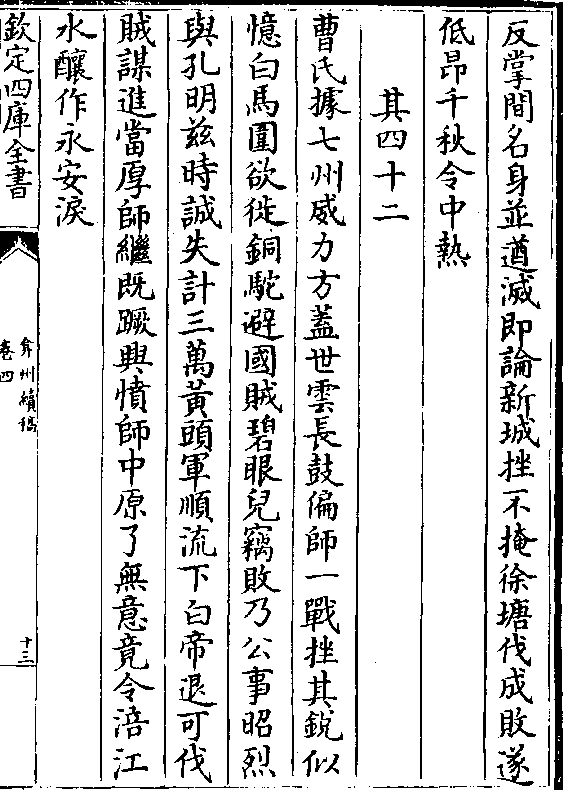 反掌間名身並遒滅即論新城挫不掩徐塘伐成敗遂
低昂千秋令中熱
其四十二
曹氏據七州威力方蓋世雲長鼓偏師一戰挫其銳似
憶白馬圍欲徙銅駝避國賊碧眼兒竊敗乃公事昭烈
與孔明兹時誠失計三萬黃頭軍順流下白帝退可伐
賊謀進當厚師繼既蹶興憤師中原了無意竟令涪江
水釀作永安淚
欽定四庫全書
弇州續稿
卷四
十三